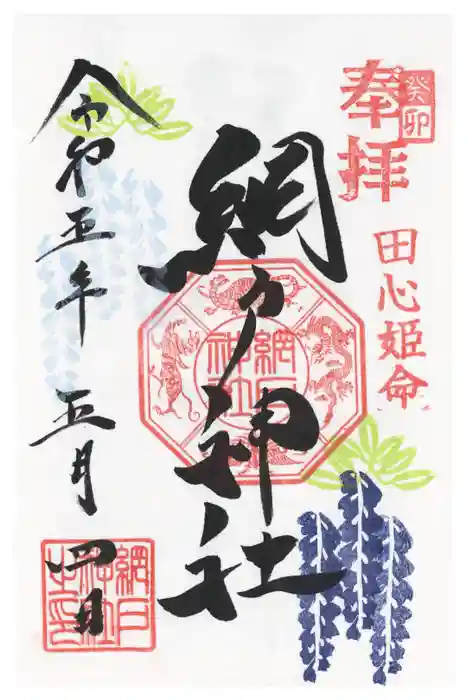 奉拝
癸卯
田心姫命
網戸神社
網戸
神社
令和五年五月四日
網戸
神社
之印